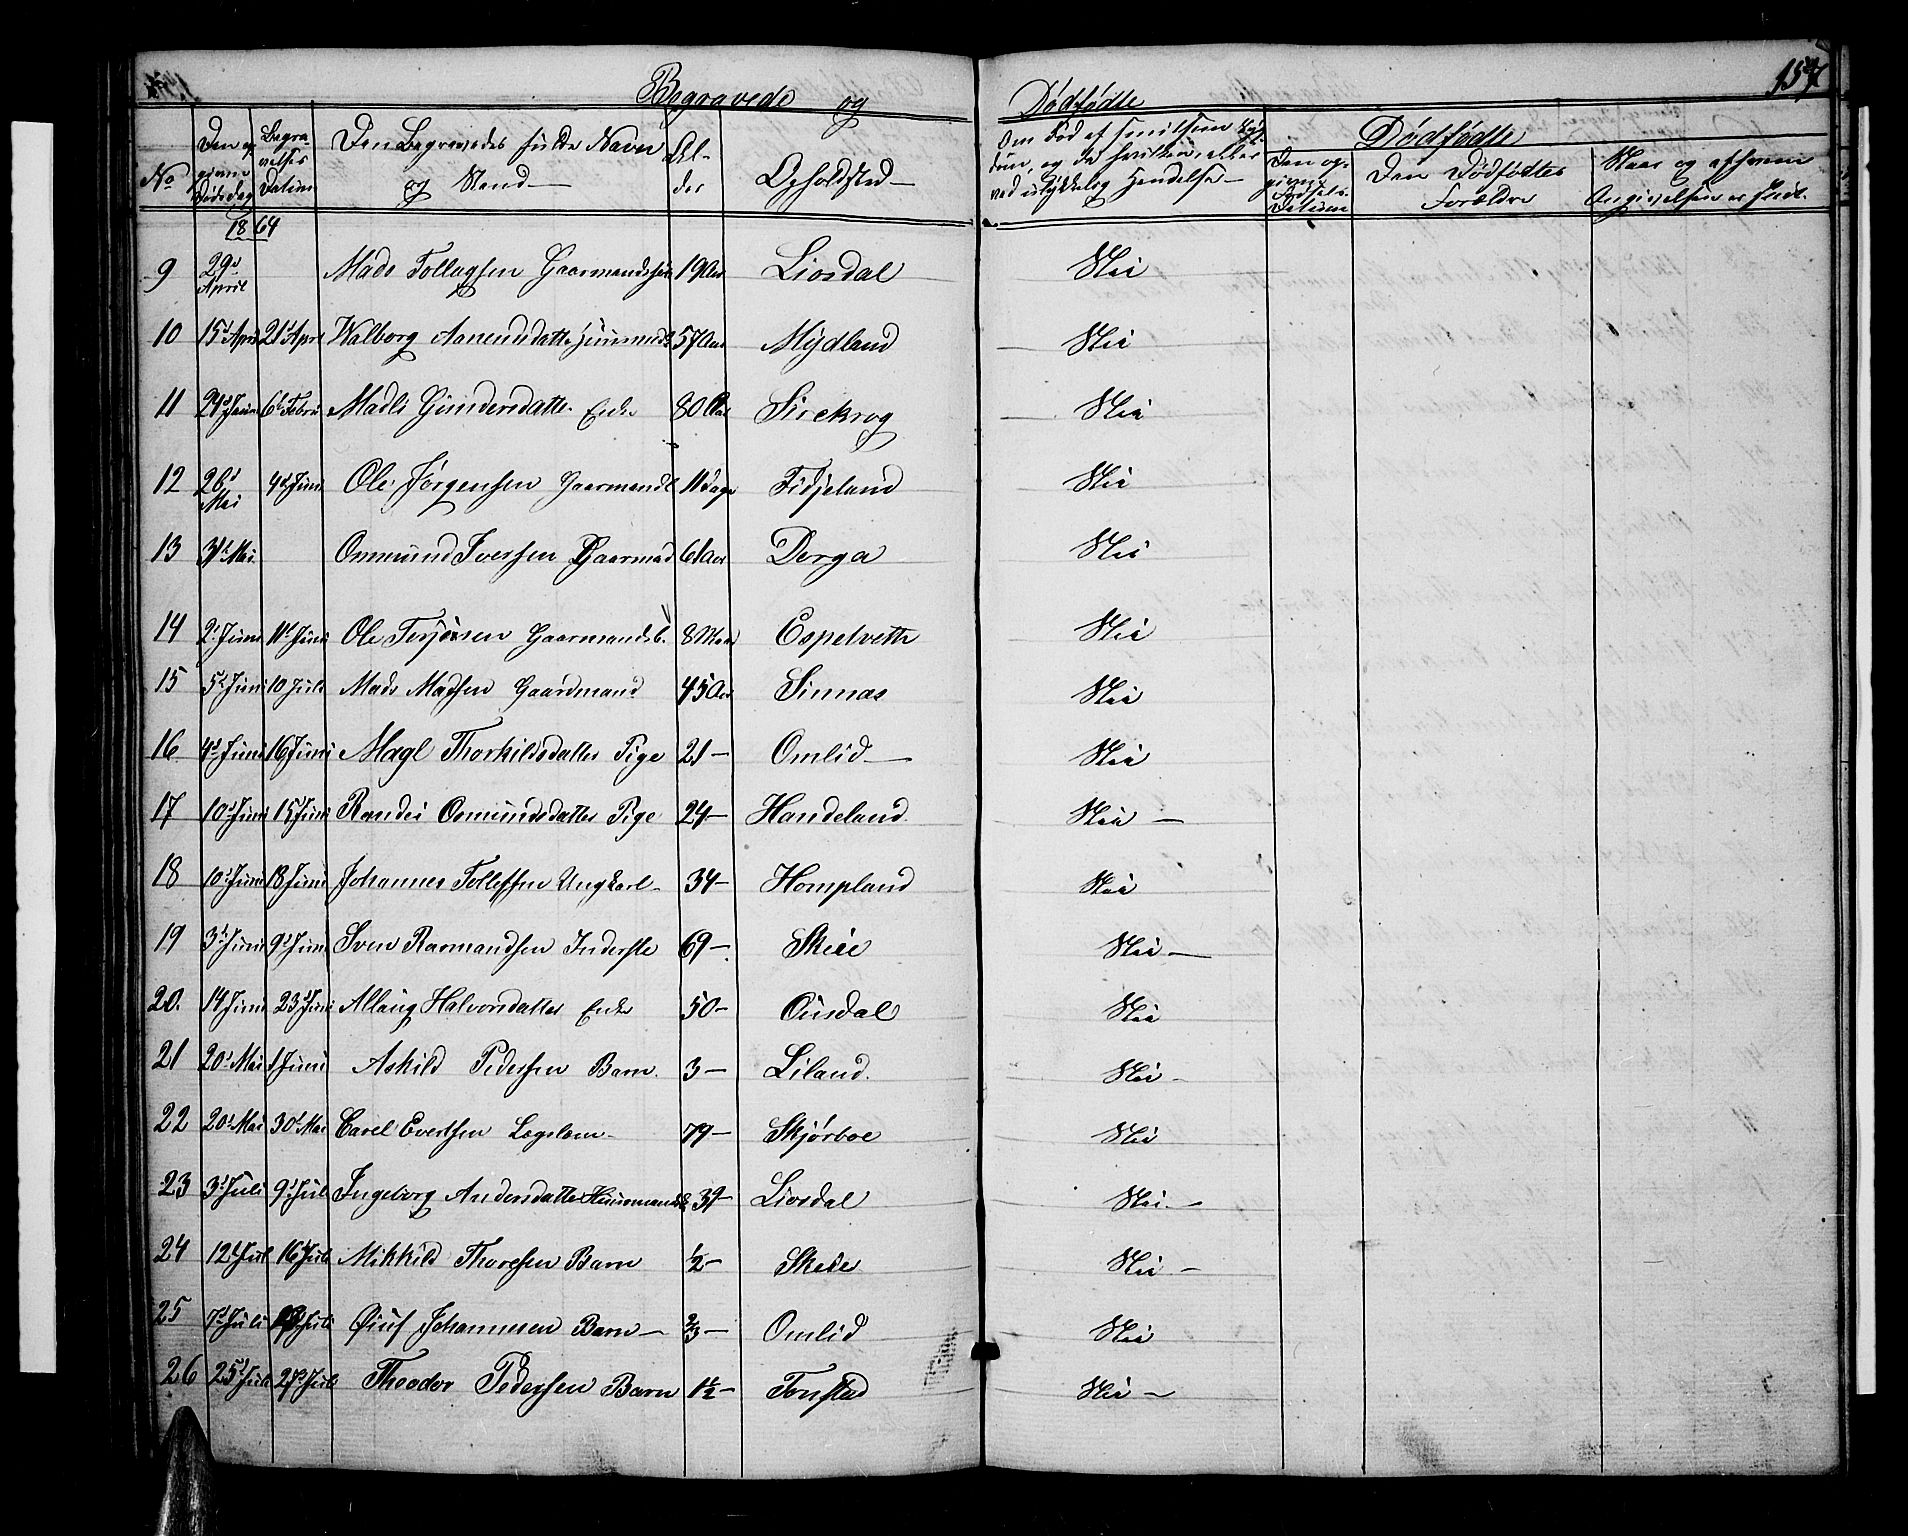 157
Begravede og Dødfødte
No
Den opgivne Dødsdag
Begravelses Datum
Den Begravedes fulde Navn og Stand
Alder
Opholdsted
Om Død af smitsom Sygdom, og da hvilken, eller ved ulykkelig Hendelse
Dødfødte
Den opgivne Fødsels Datum
Den Dødfødtes Forældre
Naar og af hvem Angivelsen er skedt.
1864
9 29d April Mads Tollagsen Gaarmandssøn 19 Aar Liosdal Nei
10 15d April 21d April Walborg Aanensdatter 57 Aar Mydland Nei
11 29d Janu 6d Febru Madli Gundersdatter Enke 80 Aar Sirekrog Nei
12 26d Mai 4d Juni Ole Jørgensen Gaarmands 11 Dage Fidjeland Nei
13 31d Mai Ommund Iversen Gaarmad 61 Aar Derga Nei
14 2d Juni 11d Juni Ole Terjesen Gaarmandsb. 8 Maa Espetvetth Nei
15 5d Juni 10 Juli Mads Madsen Gaardmand 45 Aar Sinnas Nei
16 4d Juni 16 Juni Magl Thorkildsdatter Pige 21 - Omlid - Nei
17 10d Juni 15 Juni Randei Osmundsdatter Pige 24 - Handeland Nei -
18 10d Juni 18 Juni Johannes Tollefsen Ungkarl - 34 - Hompland Nei
19 3d Juni 9d Juni Sven Rasmandsen Inderste 69 - Skeie Nei -
20. 14 Juni 23d Juni Allaug Halvorsdatter Enke 50 - Ousdal Nei
21 20d Mai 1 Juni Askild Pedersen Barn. 3 - Liland. Nei -
22 20d Mai 30d Mai Carel Evertsen Lægslem - 79 - Skjørboe Nei
23 3d Juli 9d Juli Ingeborg Andersdatter Huusmands 39 - Liosdal Nei. -
24 12d Juli 16d Juli Mikkild Thoresen Barn 1/2 - Skeie Nei -
25 7d Juli Juli Øiuf Johannesen Barn - 2/3 - Omlid Nei
26 25d Juli 27d Juli Theodor Pedersen Barn 1 1/2 - Tonstad Nei -